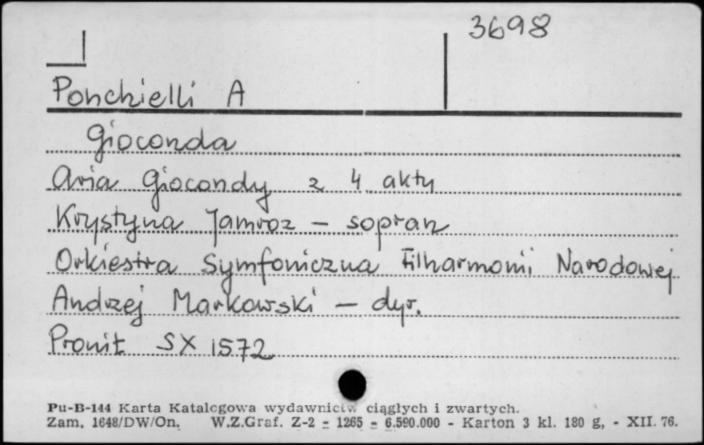 3698
Ponchielli A
Gioconda
Aria Giocondy z 4 aktu
Krystyna Jamroz – sopran
Orkiestra Symfoniczna Filharmonii Narodowej
Andrzej Markowski – dyr.
Pronit SX 1572
Pu-B-144 Karta Katalogowa wydawnictw ciągłych i zwartych.
Zam. 1648/DW/On. W.Z.Graf. Z-2 z 1265 - 6.590.000 - Karton 3 kl. 180 g, - XII. 76.